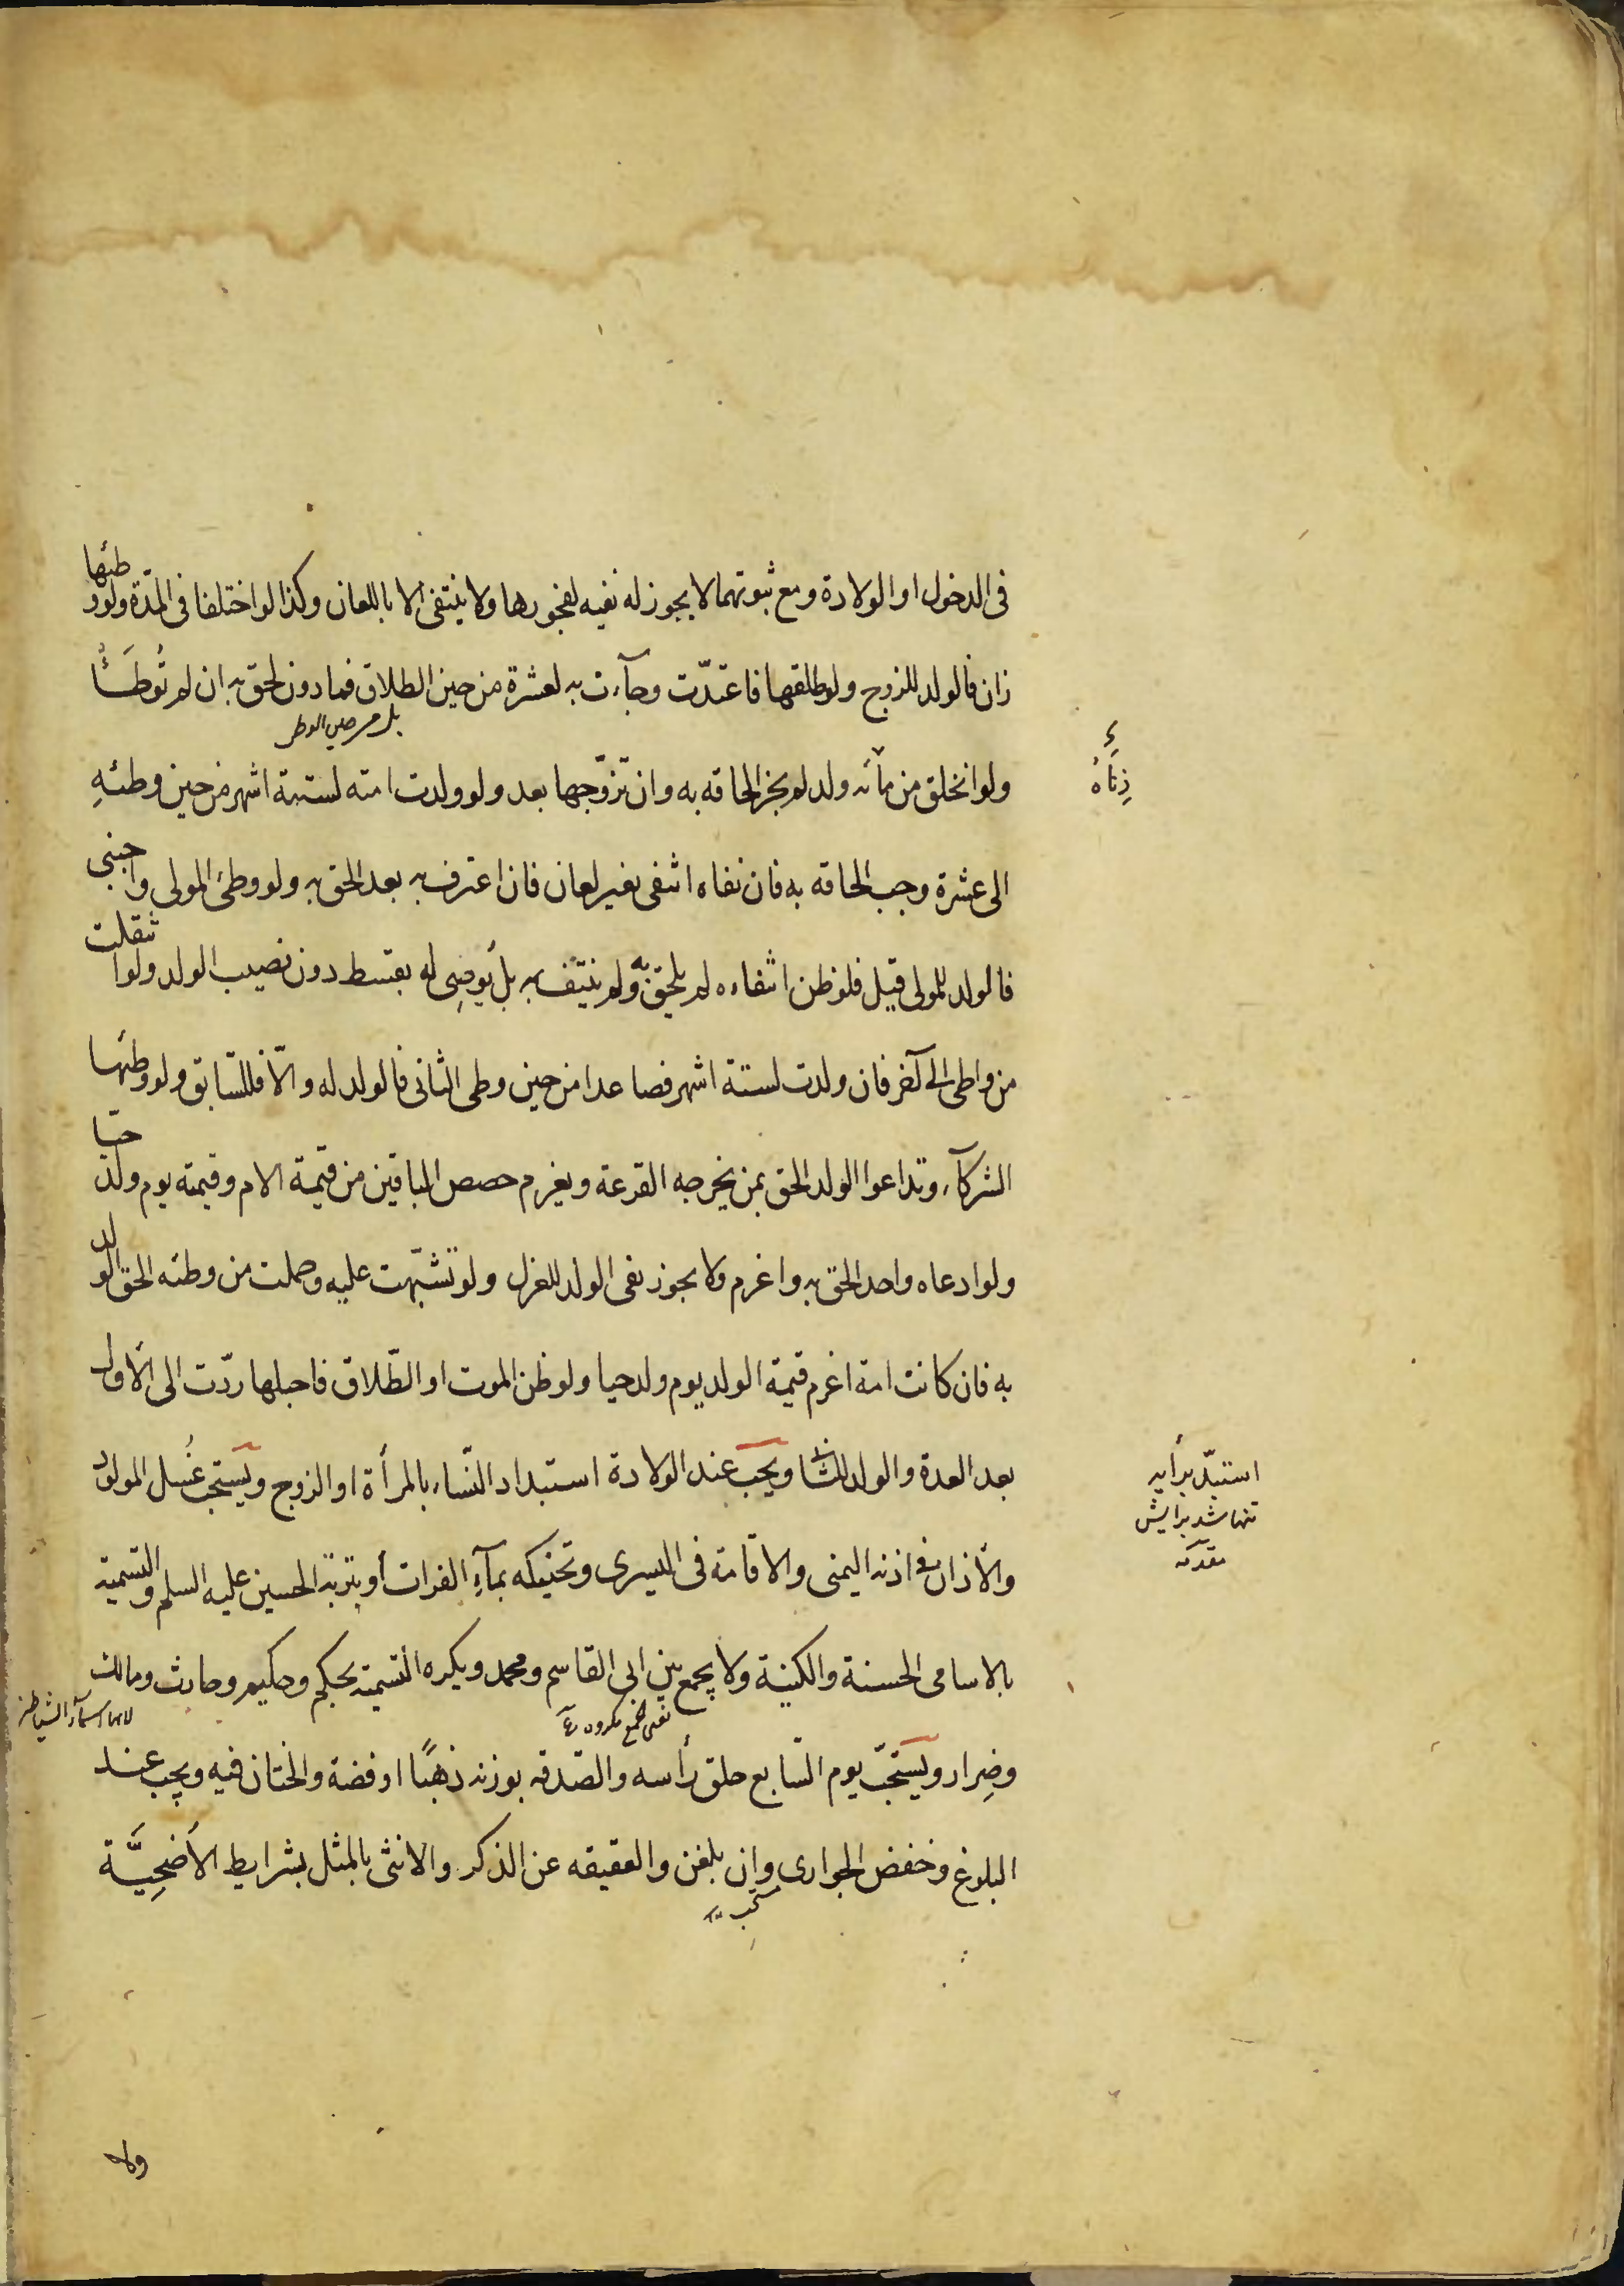 فى الدخول او الولادة ومع ثبوتهما لا يجوز له نفيه لفجورها ولا ينتفى الا باللعان وكذا لو اختلفا فى المدّة ولو وطئها
زان فالولد للزوج ولو طلقها فاعتدّت وجآءت به لعشرة من حين الطلاق فما دون لحق به ان لم تُوطَأ
ولو انخلق من مآئه ولد لم يجز الحاقه به وان تزوّجها بعد ولو ولدت امته لستة اشهر من حين وطئهِ
زِنَاهُ
الى عشرة وجب الحاقه به فان نفاه انتفى بغير لعان فان اعترف به بعد الحق به ولو وطئ المولى واجنبى
فالولد للمولى قيل فلو ظن انتفاءه لم يلحق به ولم ينتف به بل يُوصِى له بقسط دون نصيب الولد ولو انتقلت
من واطى الى آخر فان ولدت لستة اشهر فصاعدا من حين وطى الثانى فالولد له والّا فللسّابق ولو وطئها
الشركآء وتداعوا الولد الحق بمن يخرجه القرعة ويغرم حصص الباقين من قيمة الام وقيمته يوم ولد حيّا
ولو ادعاه واحد الحق به واغرم ولا يجوز نفى الولد للعزل ولو تشبّهت عليه وحملت من وطئه الحق الولد
به فان كانت امة اغرم قيمة الولد يوم ولد حيا ولو ظن الموت او الطّلاق فاحبلها ردّت الى الاول
بعد العدة والولد للثانى ويجب عند الولادة استبداد النّساء بالمرأة او الزوج ويستحب غُسل المولود
استبدّ برأيه
تنها شد برايش
والأذان فى اذنه اليمنى والاقامة فى اليسرى وتحنيكه بمآءِ الفرات أو بتربة الحسين عليه السلم والتسمية
بالاسامى الحسنة والكنية ولا يجمع بين ابى القاسم ومحمد ويكره التسمية بحكم وحكيم وحارث ومالك
لانها اسمآء الشياطين
وضِرار ويستحبّ يوم السّابع حلق رأسه والصّدقه بوزنه ذهبًا او فضة والختان فيه ويجب عند
البلوغ وخفض الجوارى وان بلغن والعقيقه عن الذكر والانثى بالمثل بشرايط الأضحِيَّة
ولا